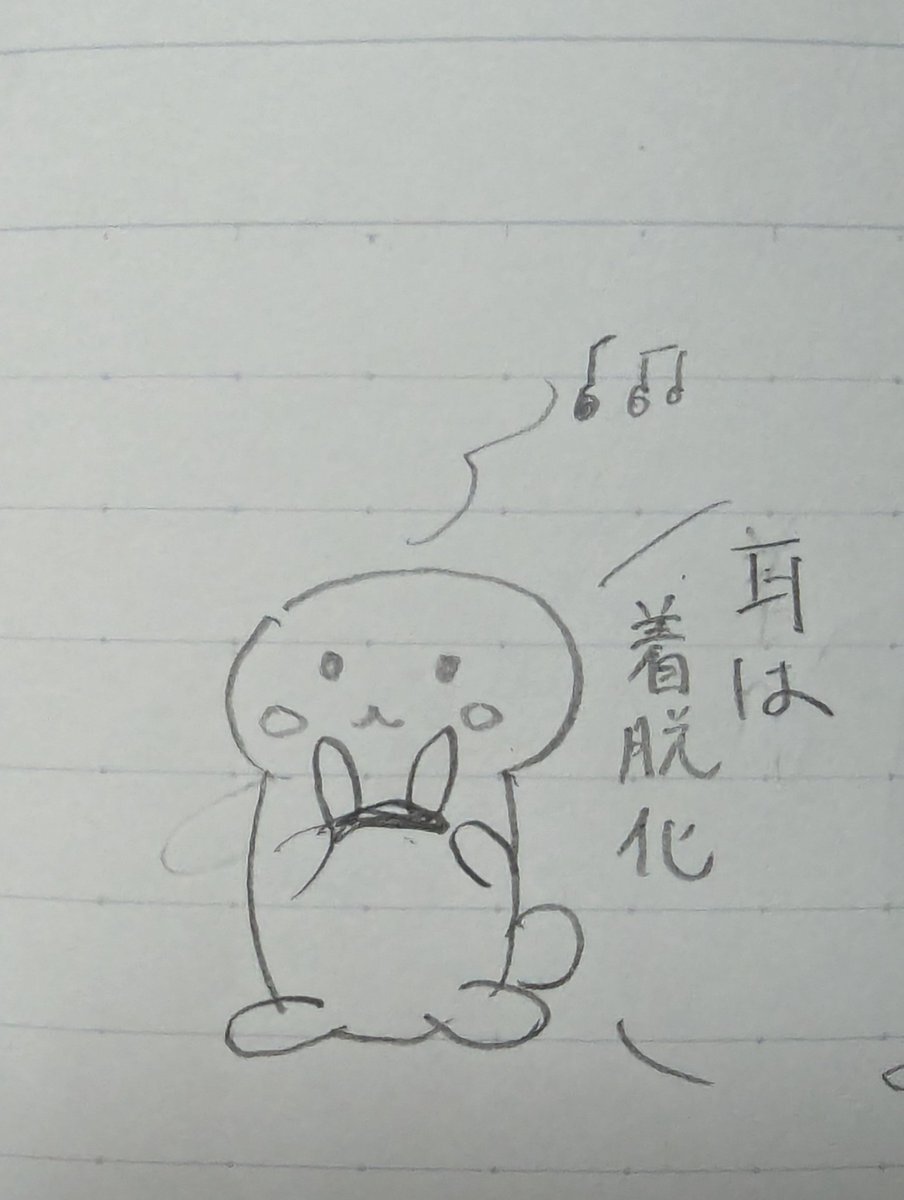 耳は
着脱化